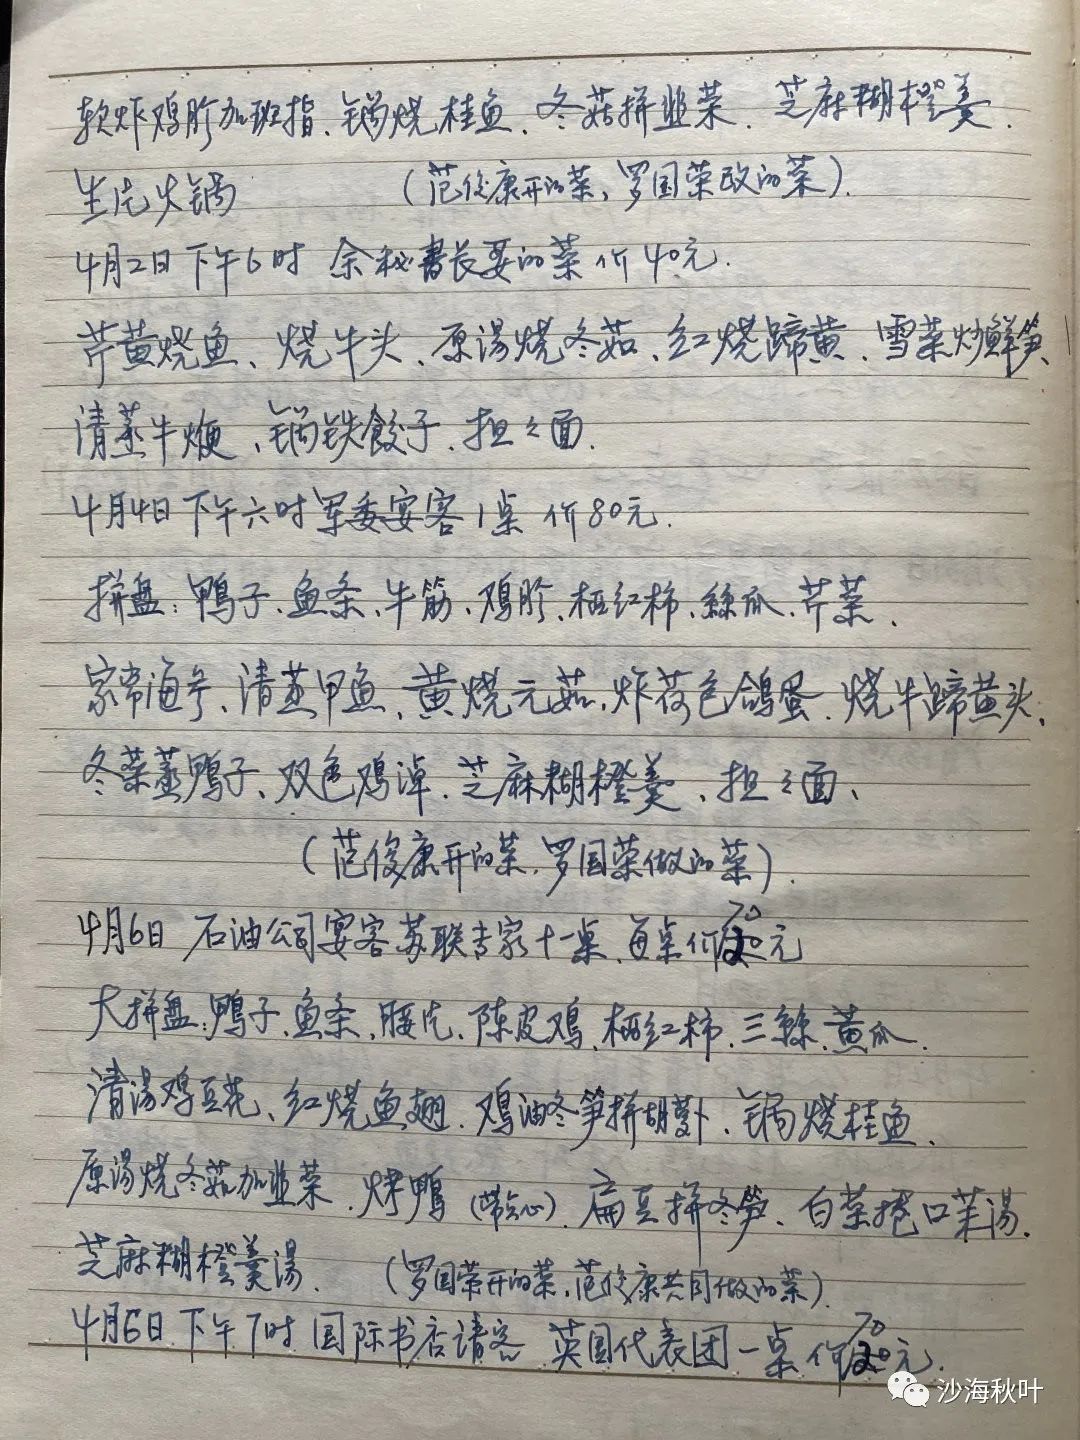 软炸鸡胗加班指、锅烧桂鱼、冬菇拼韭菜、芝麻糊橙羹、
生片火锅 (范俊康开的菜,罗国荣改的菜).
4月2日下午6时 余秘书长要的菜 价40元.
芹黄烧鱼、烧牛头、原湯烧冬茹、红烧蹄黄、雪菜炒鲜笋、
清蒸牛、锅铁餃子、担々面.
4月4日下午六时军委宴客1桌 价80元.
拼盘:鴨子、鱼条、牛筋、鸡胗、柿、絲瓜、芹菜、
家常海参、清蒸甲鱼、黄烧元菇、炸荷包鸽蛋、烧牛蹄黄头、
冬菜蒸鴨子、双色鸡淖、芝麻糊橙羹、担々面、
(范俊康开的菜,罗国荣做的菜).
4月6日 石油公司宴客苏联专家十一桌、每桌价70元
大拼盘:鴨子、鱼条、腰片、陈皮鸡、柿、三絲、黄瓜、
清湯鸡豆花、红烧鱼翅、鸡油冬笋拼胡萝卜、锅烧桂鱼、
原湯烧冬菇加韭菜、烤鴨(带点心)、扁豆拼冬笋、白菜捲口茉湯、
芝麻糊橙羹湯、 (罗国荣开的菜,范俊康共同做的菜)
4月6日下午7时 国际书店请客 英国代表团一桌 价70元.
沙海秋叶